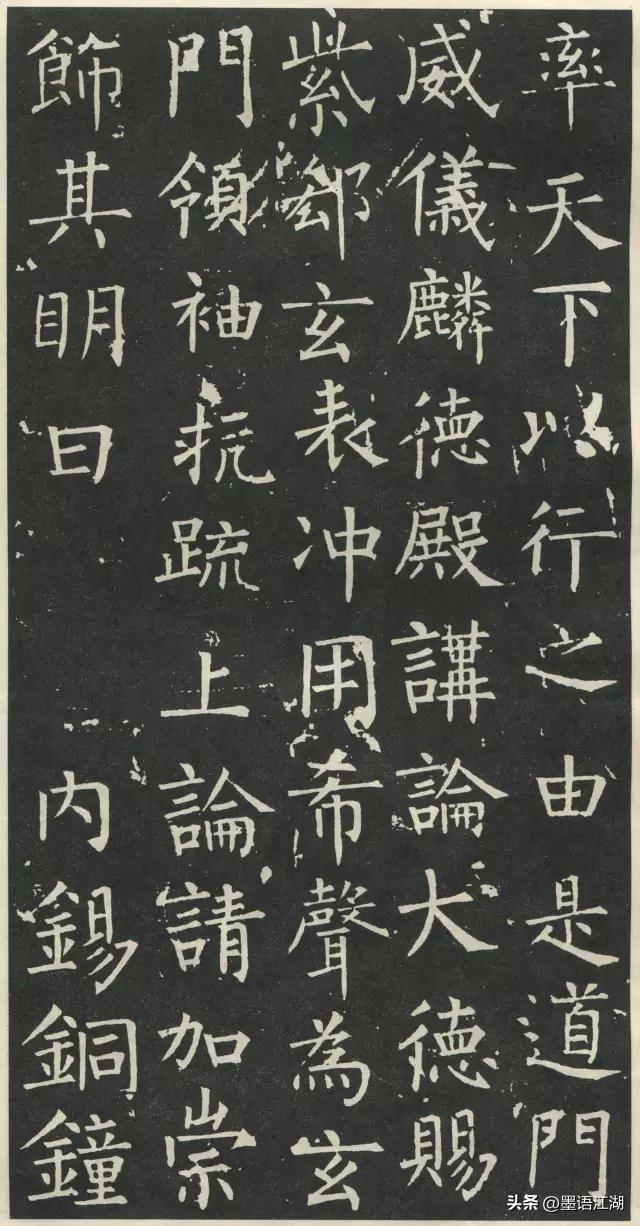 率天下以行之由是道門
威儀麟德殿講論大德賜
紫郄玄表冲用希聲為玄
門領袖抗疏上論請加崇
飾其明日 内錫銅鐘
头条 @墨语江湖